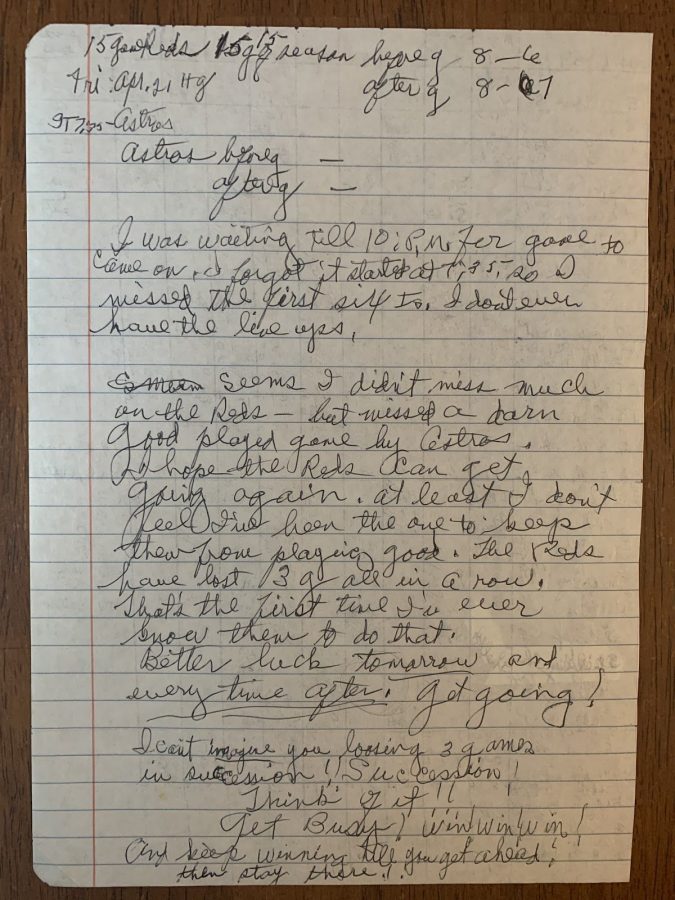 15 game Reds 15 g season before g 8-6
Fri: Apr. 21 Hg after g 8-7
ST 7:35-Astros
Astros before g —
after g —
I was waiting till 10: P.M. for game to
come on. I forgot it started at 7:35, so I
missed the first six I. I don't even
have the line ups.
Seems I didn't miss much
on the Reds - but missed a darn
good played game by Astros.
I hope the Reds can get
going again. at least I don't
feel I've been the one to keep
them from playing good. The Reds
have lost 3 g all in a row.
That's the first time I've ever
know them to do that.
Better luck tomorrow and
every time after. Get going!
I can't imagine you loosing 3 games
in succession!! Succession!
Think of it!!
Get Busy! win! win! win!
And keep winning till you get ahead!
then stay there!!